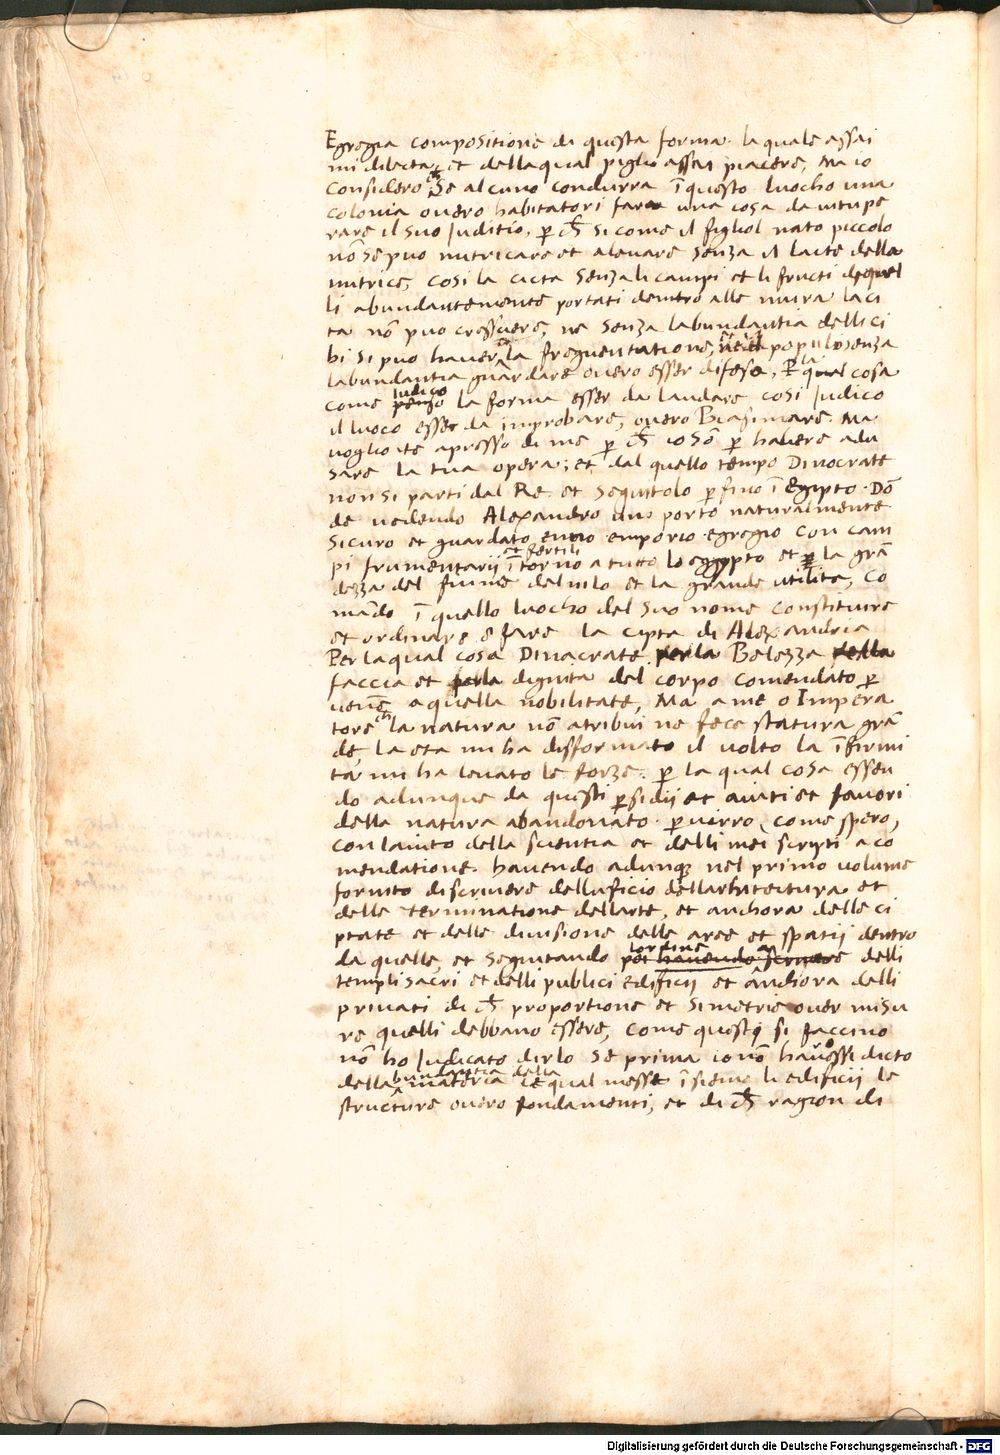 Egregia compositione di questa forma. la quale assai
mi dilecta, et dellaqual piglio assai piacere, Ma io
considero ch̃ Se alcuno condurra ĩ questo luocho una
colonia overo habitatori fara una cosa da vitupe
rare il suo Juditio, p̱ ch̃ sicome il figliol nato piccolo
nõ se puo nutricare et alevare senza il lacte della
nutrice, cosi la cicta senza li campi et li fructi di quel
li abundantemente portati dentro alle mura la ci
ta nõ puo cressere, ne senza labundantia delli ci
bi si puo haver la frequentatione, ne il populo senza
labundantia guardare overo esser difeso, P̱ la qual cosa
come Judico penso la forma esser da laudare cosi Judico
il luoco esser da improbare, overo Biasimare. Ma
voglio te apresso di me p̱ ch̃ io sõ p̱ havere adu
sare la tua opera; et dal quello tempo Dinocrate
non si parti dal Re et seguitolo p̱ fino ĩ Egipto. Dõ
de vedendo Alexandro uno porto naturalmente
sicuro et guardato, emporio egregio con cam
pi frumentarii et fertili ĩ torno a tutto lo egypto et la grã
dezza del fiume del nilo et la grande utilita, co
mãdo ĩ quello luocho del suo nome constituire
et ordinare e fare la cipta di Alexandria
Perlaqual cosa Dinacrate perla Belezza della
faccia et perla dignita del corpo comendato p̱
venẽ a quella nobilitate, Ma a me o Impera
tore la natura nõ atribui ne fece statura grã
de, la eta mi ha disformato il volto la ĩfirmi
ta mi ha levato le forze. p̱ la qual cosa essen
do adunque da questi p̱sidii et aiuti et favori
della natura abandonato. p̱virro, come spero,
con laiuto della scientia et delli mei scripti a co
mendatione. havendo adunq̃ nel primo volume
fornito di scrivere delluficio dellarhitectura et
delle terminatione dellarte, et anchora delle ci
ptate et delle divisione delle aree et spatij dentro
da quelle, et seguitando lordine per havendo a scrivere delli
templi sacri et delli publici edificij et anchora delli
privati di ch̃ proportione et simetrie over misu
re quelli debbano essere, come questi si faccino
nõ ho Judicato dirlo se prima io nõ havessi dicto
della bundantia della materia le qual messe ĩsieme li edificij le
structure overo fondamenti, et di ch̃ ragion di
Digitalisierung gefördert durch die Deutsche Forschungsgemeinschaft - DFG